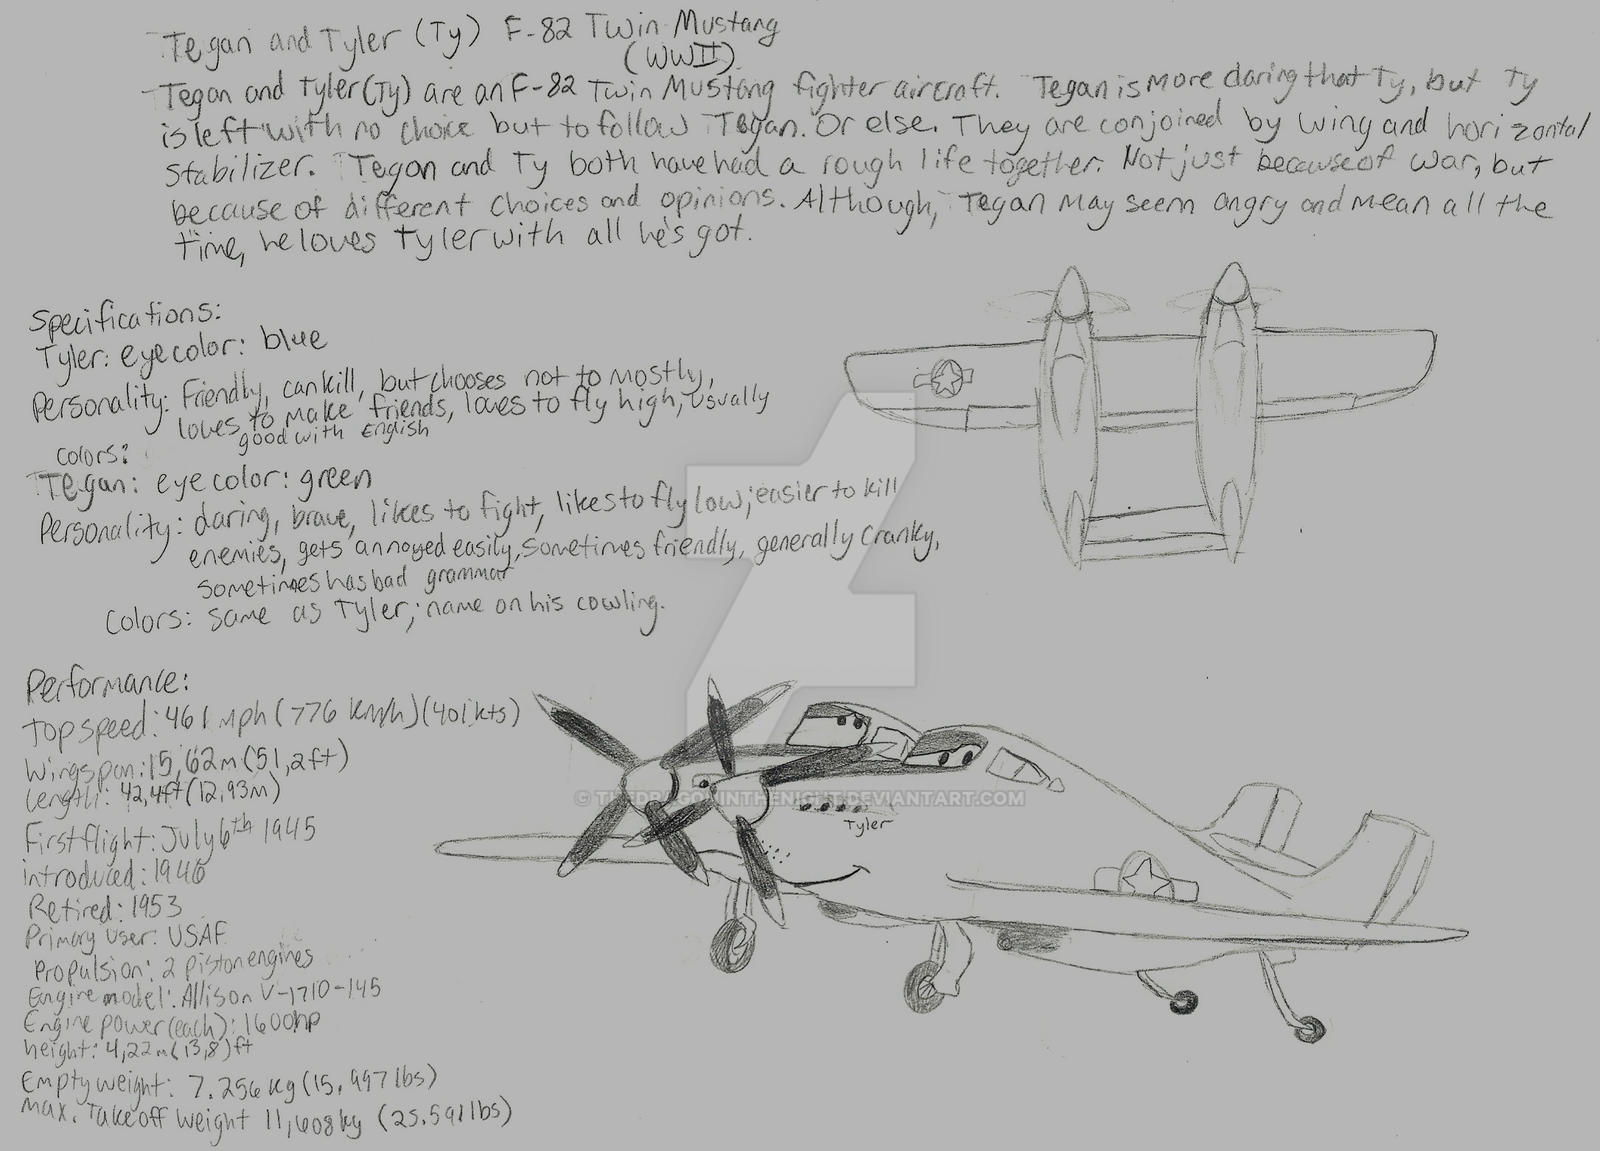 Tegan and Tyler (Ty) F-82 Twin Mustang
(WWII)
Tegan and Tyler (Ty) are an F-82 Twin Mustang fighter aircraft. Tegan is more daring that Ty, but Ty
is left with no choice but to follow Tegan. Or else. They are conjoined by wing and horizontal
stabilizer. Tegan and Ty both have had a rough life together. Not just because of war, but
because of different choices and opinions. Although, Tegan may seem angry and mean all the
time, he loves Tyler with all he's got.
Specifications:
Tyler: eye color: blue
Personality: Friendly, can kill, but chooses not to mostly,
loves to make friends, loves to fly high, usually
good with English
Colors:
Tegan: eye color: green
Personality: daring, brave, likes to fight, likes to fly low; easier to kill
enemies, gets annoyed easily, sometimes friendly, generally cranky,
sometimes has bad grammar
Colors: same as Tyler; name on his cowling.
Performance:
Top speed: 461 mph (776 km/h) (401 kts)
Wingspan: 15,62m (51,2ft)
Length: 42,4ft (12,93m)
First flight: July 6th 1945
introduced: 1946
Retired: 1953
Primary user: USAF
Propulsion: 2 piston engines
Engine model: Allison V-1710-145
Engine power (each): 1600hp
height: 4,22m (13,8) ft
Empty weight: 7.256 kg (15,997 lbs)
Max. Takeoff weight 11,608kg (25.591 lbs)
Tyler
© THEDRAGONINTHENIGHT.DEVIANTART.COM